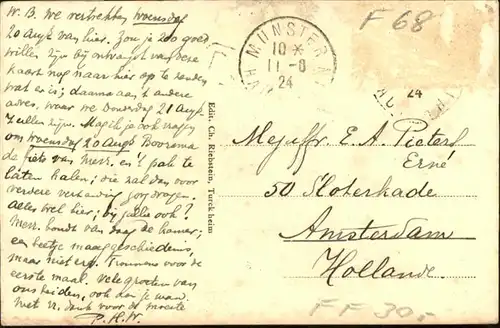 W. B. We vertrekken Woensdag
20 Aug. van hier. Zou je zoo goed
willen zijn bij ontvangst van deze
kaart nog naar hier op te zenden
wat er is; daarna aan 't andere
adres, waar we Donderdag 21 Aug.
zullen zijn. Mag ik je ook vragen
om Woensdag 20 Aug. Boorsma
de fiets van Mevr. en 't pak te
laten halen; die zal dan voor
verdere verzending zorgdragen.
Alles wel hier; bij jullie ook?
Mevr. houdt van daag de kamer;
een beetje maaggeschiedenis,
maar niet erg. Trouwens voor de
eerste maal. Vele groeten van
ons beiden, ook aan je man.
Met vr. dank voor de moeite
P. H. W.
Edit. Ch. Riebstein, Turckheim
MUNSTER
10 *
11-8
24
F 68
24
Mejuffr. E. A. Pieters
Erné
50 Sloterkade
Amsterdam
Hollande.
FF 30,-